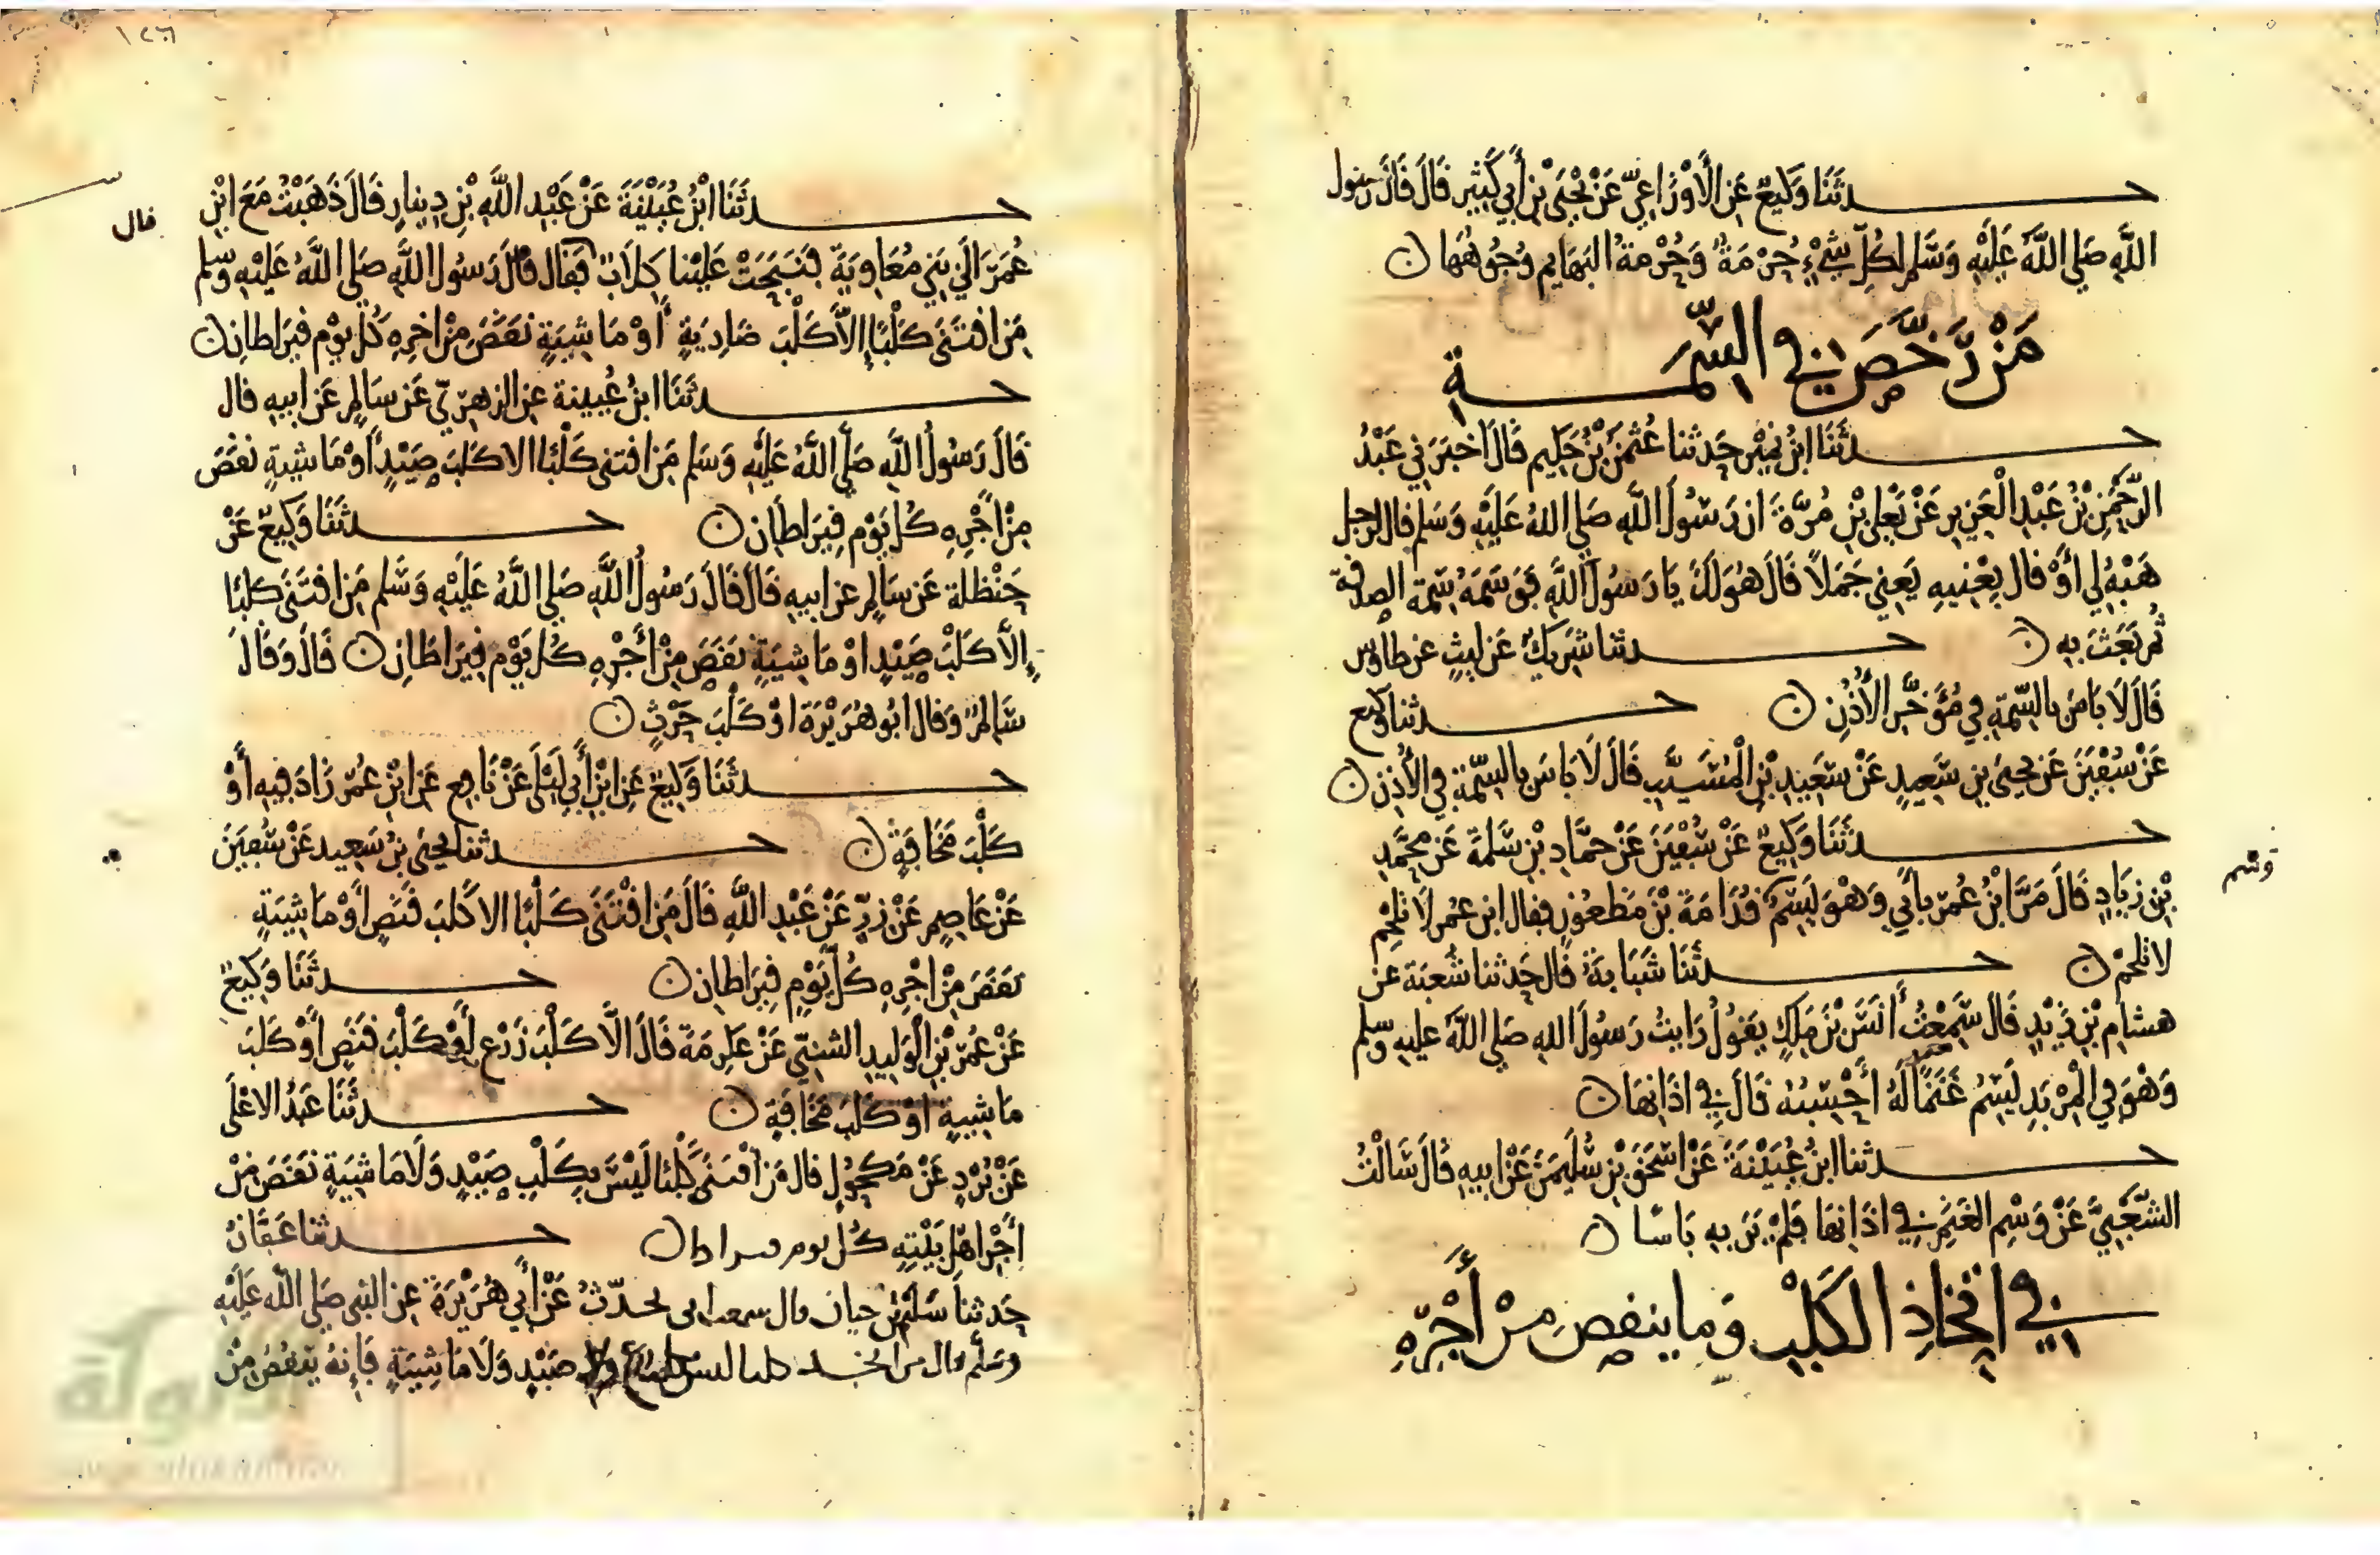 حدثنا وكيع عن الأوزاعي عن يحيى بن أبي كثير قال قال رسول
الله صلى الله عليه وسلم لكل شيء حرمة وحرمة البهايم وجوهها
من رخص في السمة
حدثنا ابن نمير حدثنا عثمن بن حكيم قال اخبرني عبد
الرحمن بن عبد العزيز عن يعلى بن مرة ان رسول الله صلى الله عليه وسلم قال لرجل
هبه لي أو قال بعنيه يعني جملا قال هو لك يا رسول الله فوسمه سمة الصدقة
ثم بعث به حدثنا شريك عن ليث عن طاوس
قال لا باس بالسمة في مؤخر الأذن حدثنا وكيع
عن سفين عن يحيى بن سعيد عن سعيد بن المسيب قال لا باس بالسمة في الأذن
حدثنا وكيع عن سفين عن حماد بن سلمة عن محمد
بن زياد قال مر ابن عمر بأبي وهو يسم قدامة بن مظعون فقال ابن عمر لا تلحم
وسم
لا تلحم حدثنا شبابة قال حدثنا شعبة عن
هشام بن زيد قال سمعت أنس بن ملك يقول رايت رسول الله صلى الله عليه وسلم
وهو في المربد يسم غنما له أحسبه قال في اذانها
حدثنا ابن عيينة عن اسحق بن سليمن عن ابيه قال سالت
الشعبي عن وسم الغنم في اذانها فلم ير به باسا
في اتخاذ الكلب وما ينقص من أجره
١٢٦
حدثنا ابن عيينة عن عبد الله بن دينار قال ذهبت مع ابن
قال
عمر الى بني معاوية فنبحت علينا كلاب فقال قال رسول الله صلى الله عليه وسلم
من اقتنى كلبا إلا كلب ضارية أو ماشية نقص من اجره كل يوم قيراطان
حدثنا ابن عيينة عن الزهري عن سالم عن ابيه قال
قال رسول الله صلى الله عليه وسلم من اقتنى كلبا الا كلب صيد أو ماشية نقص
من أجره كل يوم قيراطان حدثنا وكيع عن
حنظلة عن سالم عن ابيه قال قال رسول الله صلى الله عليه وسلم من اقتنى كلبا
إلا كلب صيد او ماشية نقص من أجره كل يوم قيراطان قال وقال
سالم وقال ابو هريرة او كلب حرث
حدثنا وكيع عن ابن أبي ليلى عن نافع عن ابن عمر زاد فيه أو
كلب مخافة حدثنا يحيى بن سعيد عن سفين
عن عاصم عن زر عن عبد الله قال من اقتنى كلبا الا كلب قنص أو ماشية
نقص من اجره كل يوم قيراطان حدثنا وكيع
عن عمر بن الوليد الشني عن عكرمة قال الا كلب زرع أو كلب قنص أو كلب
ماشية او كلب مخافة حدثنا عبد الاعلى
عن برد عن مكحول قال من اقتنى كلبا ليس بكلب صيد ولا ماشية نقص من
أجر اهل بيته كل يوم قيراطا حدثنا عفان
حدثنا سليم بن حيان قال سمعت ابي يحدث عن أبي هريرة عن النبي صلى الله عليه
وسلم قال من اتخذ كلبا ليس بكلب زرع ولا صيد ولا ماشية فإنه ينقص من
الألوكة